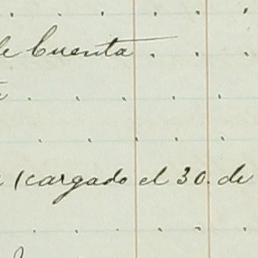 de Cuenta . . .
(cargado el 30. de